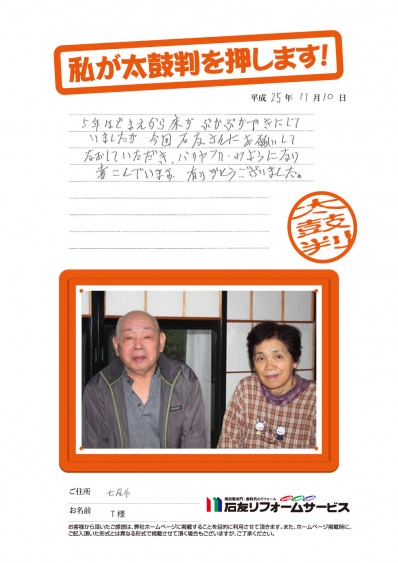 私が太鼓判を押します!
平成 25 年 11 月 10 日
5年ほどまえから床がぶかぶかで気にして
いましたが 今回 石友さんにお願いして
なおしていただき、バリヤフリーのようになり
喜こんでいます 有りがとうございました。
太鼓判
ご住所 七尾市
お名前 T様
増改築専門・新時代のリフォーム
石友リフォームサービス
お客様から頂いたご感想は、弊社ホームページに掲載することを目的に利用させて頂きます。また、ホームページ掲載時に、
ご記入頂いた形式とは異なる形式で掲載させて頂く場合もございますが、ご了承ください。